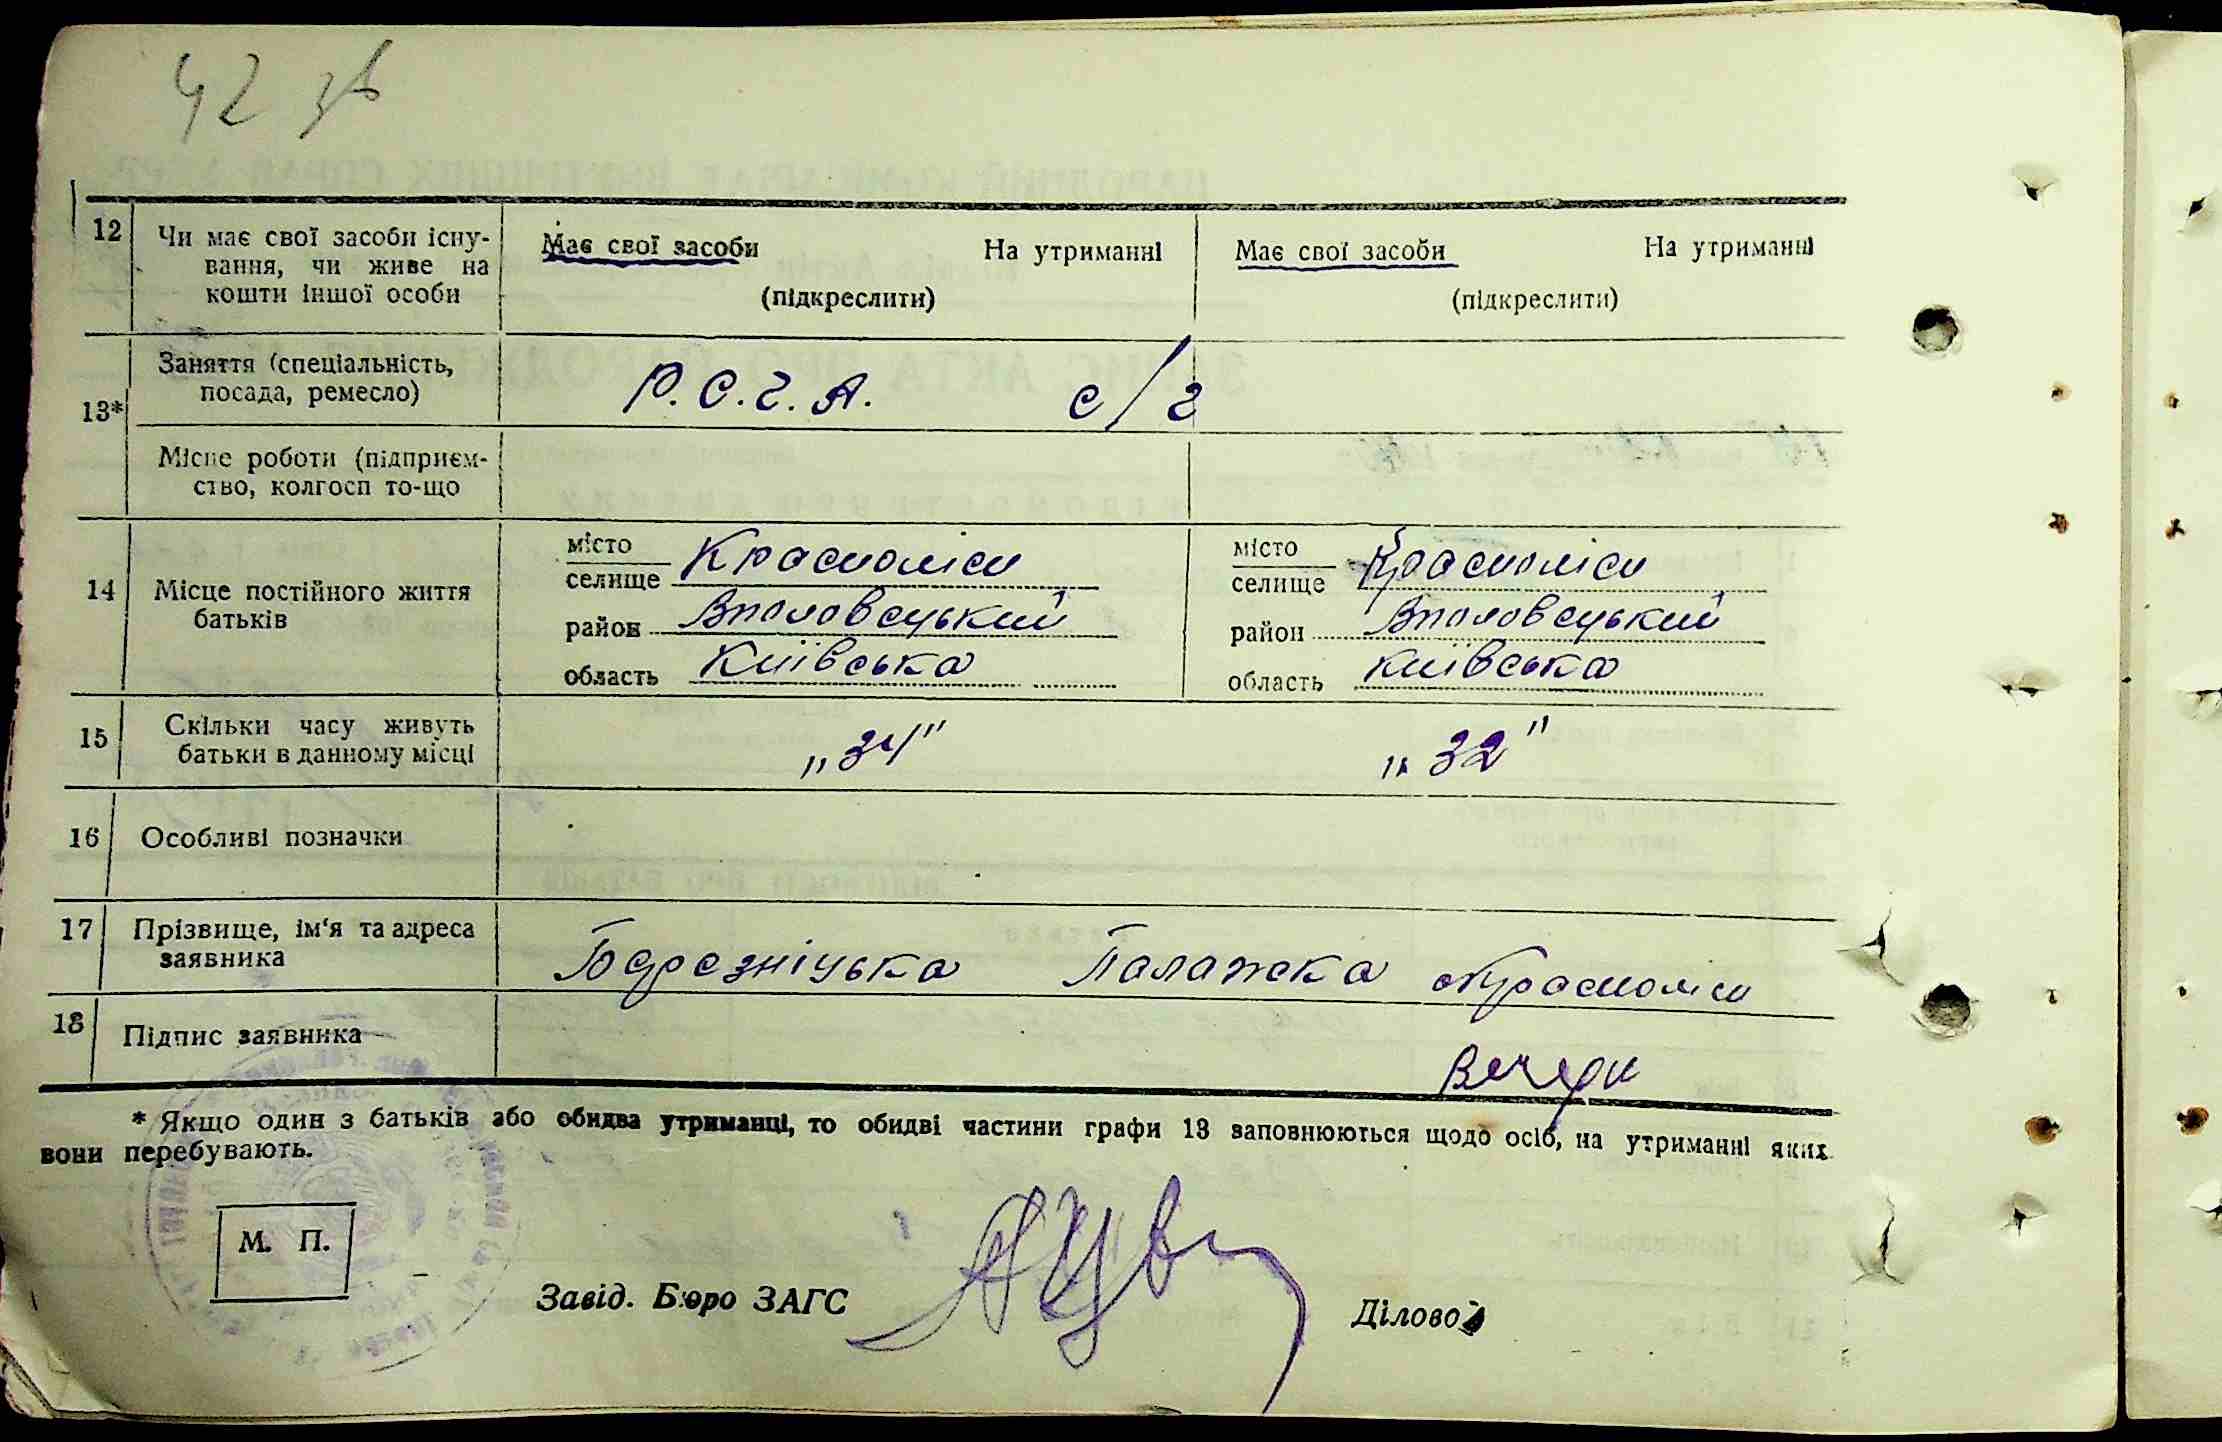 42 зв
12 Чи має свої засоби існу-
вання, чи живе на
кошти іншої особи
Має свої засоби На утриманні
(підкреслити)
Має свої засоби На утриманні
(підкреслити)
13* Заняття (спеціальність,
посада, ремесло)
Р.С.Ч.А. с/г
Місце роботи (підприєм-
ство, колгосп то-що
14 Місце постійного життя
батьків
місто
селище Красноліси
район
область Київська
місто
селище Красноліси
район
область Київська
15 Скільки часу живуть
батьки в данному місці
„34" „32"
16 Особливі позначки
17 Прізвище, ім'я та адреса
заявника
Березніцька Палажка Красноліси
18 Підпис заявника
* Якщо один з батьків або обидва утриманці, то обидві частини графи 13 заповнюються щодо осіб, на утриманні яких
вони перебувають.
М. П.
Завід. Бюро ЗАГС Діловод